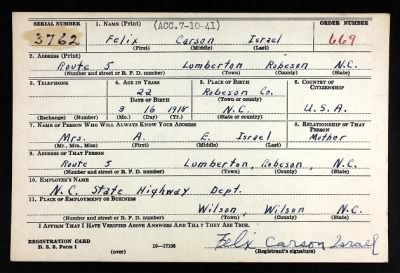 SERIAL NUMBER 1. NAME (Print) (ACC. 7-10-41) ORDER NUMBER
3762 Felix Carson Israel 669
(First) (Middle) (Last)
2. ADDRESS (Print)
Route 5 Lumberton Robeson N.C.
(Number and street or R. F. D. number) (Town) (County) (State)
3. TELEPHONE 4. AGE IN YEARS 5. PLACE OF BIRTH 6. COUNTRY OF CITIZENSHIP
22 Robeson Co.
DATE OF BIRTH (Town or county)
3 16 1918 N.C. U.S.A.
(Exchange) (Number) (Mo.) (Day) (Yr.) (State or country)
7. NAME OF PERSON WHO WILL ALWAYS KNOW YOUR ADDRESS 8. RELATIONSHIP OF THAT PERSON
Mrs. A. E. Israel Mother
(Mr., Mrs., Miss) (First) (Middle) (Last)
9. ADDRESS OF THAT PERSON
Route 5 Lumberton, Robeson, N.C.
(Number and street or R. F. D. number) (Town) (County) (State)
10. EMPLOYER'S NAME
N.C. State Highway Dept.
11. PLACE OF EMPLOYMENT OR BUSINESS
Wilson, Wilson N.C.
(Number and street or R. F. D. number) (Town) (County) (State)
I AFFIRM THAT I HAVE VERIFIED ABOVE ANSWERS AND THAT THEY ARE TRUE.
REGISTRATION CARD
D. S. S. Form 1 (over) 16-17105 Felix Carson Israel
(Registrant's signature)